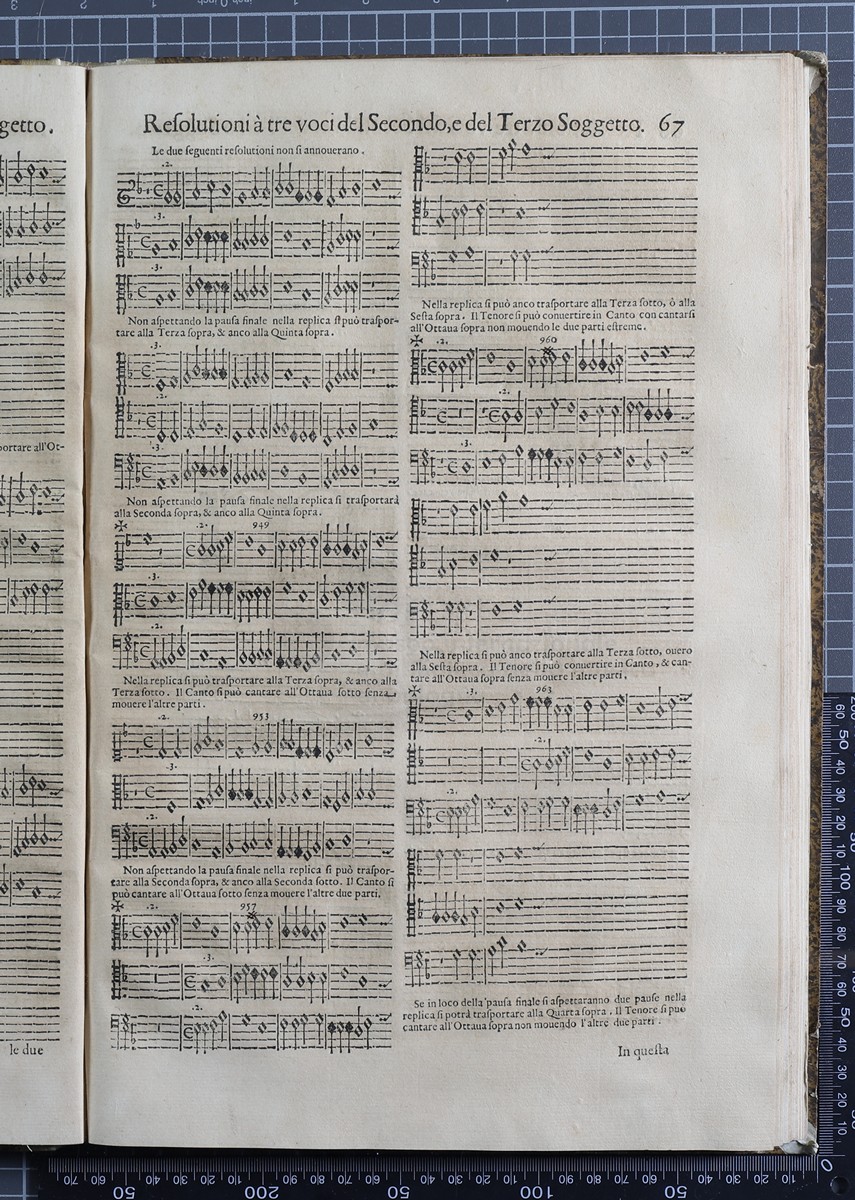 getto.
portare all'Ot-
le due
Resolutioni à tre voci del Secondo, e del Terzo Soggetto. 67
Le due seguenti resolutioni non si annouerano.
.2.
.3.
.3.
Non aspettando la pausa finale nella replica si può traspor-
tare alla Terza sopra, & anco alla Quinta sopra.
.3.
.2.
.3.
Non aspettando la pausa finale nella replica si trasportarà
alla Seconda sopra, & anco alla Quinta sopra.
.2. 949
.3.
.2.
Nella replica si può trasportare alla Terza sopra, & anco alla
Terza sotto. Il Canto si può cantare all'Ottaua sotto senza
mouere l'altre parti.
.2. 953
.3.
.2.
Non aspettando la pausa finale nella replica si può traspor-
tare alla Seconda sopra, & anco alla Seconda sotto. Il Canto si
può cantare all'Ottaua sotto senza mouere l'altre due parti.
.2. 957
.3.
.2.
Nella replica si può anco trasportare alla Terza sotto, ò alla
Sesta sopra. Il Tenore si può conuertire in Canto con cantarsi
all'Ottaua sopra non mouendo le due parti estreme.
.2. 960
.2.
.3.
Nella replica si può anco trasportare alla Terza sotto, ouero
alla Sesta sopra. Il Tenore si può conuertire in Canto, & can-
tare all'Ottaua sopra senza mouere l'altre parti.
.3. 963
.2.
.2.
Se in loco della pausa finale si aspettaranno due pause nella
replica si potrà trasportare alla Quarta sopra. Il Tenore si può
cantare all'Ottaua sopra non mouendo l'altre due parti.
In questa